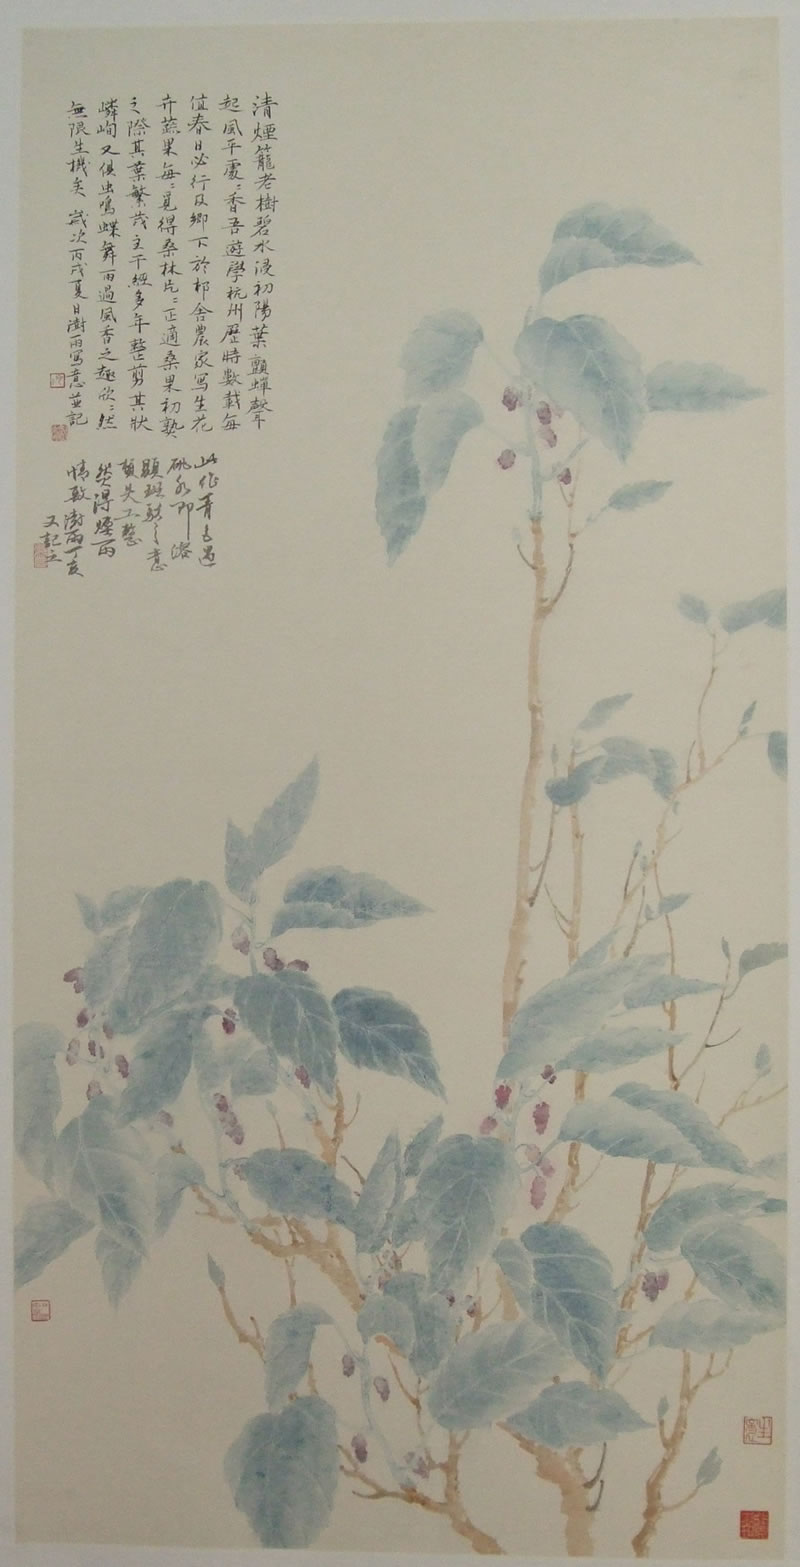 清煙籠老樹碧水浸初陽葉顫蟬聲
起風平處〻香吾遊學杭州歷時數載每
值春日必行及鄉下於邨舍農家寫生花
卉蔬果每〻見得桑林片〻正適桑果初熟
之際其葉繁茂主干經多年整剪其狀
嶙峋又俱虫鳴蝶舞雨過風香之趣欣〻然
無限生機矣 歲次丙戌夏日澍雨寫意並記
此作青色遇
礬水即溶
顯斑駁之意
頓失工整
然得煙雨
情致澍雨丁亥
又記之